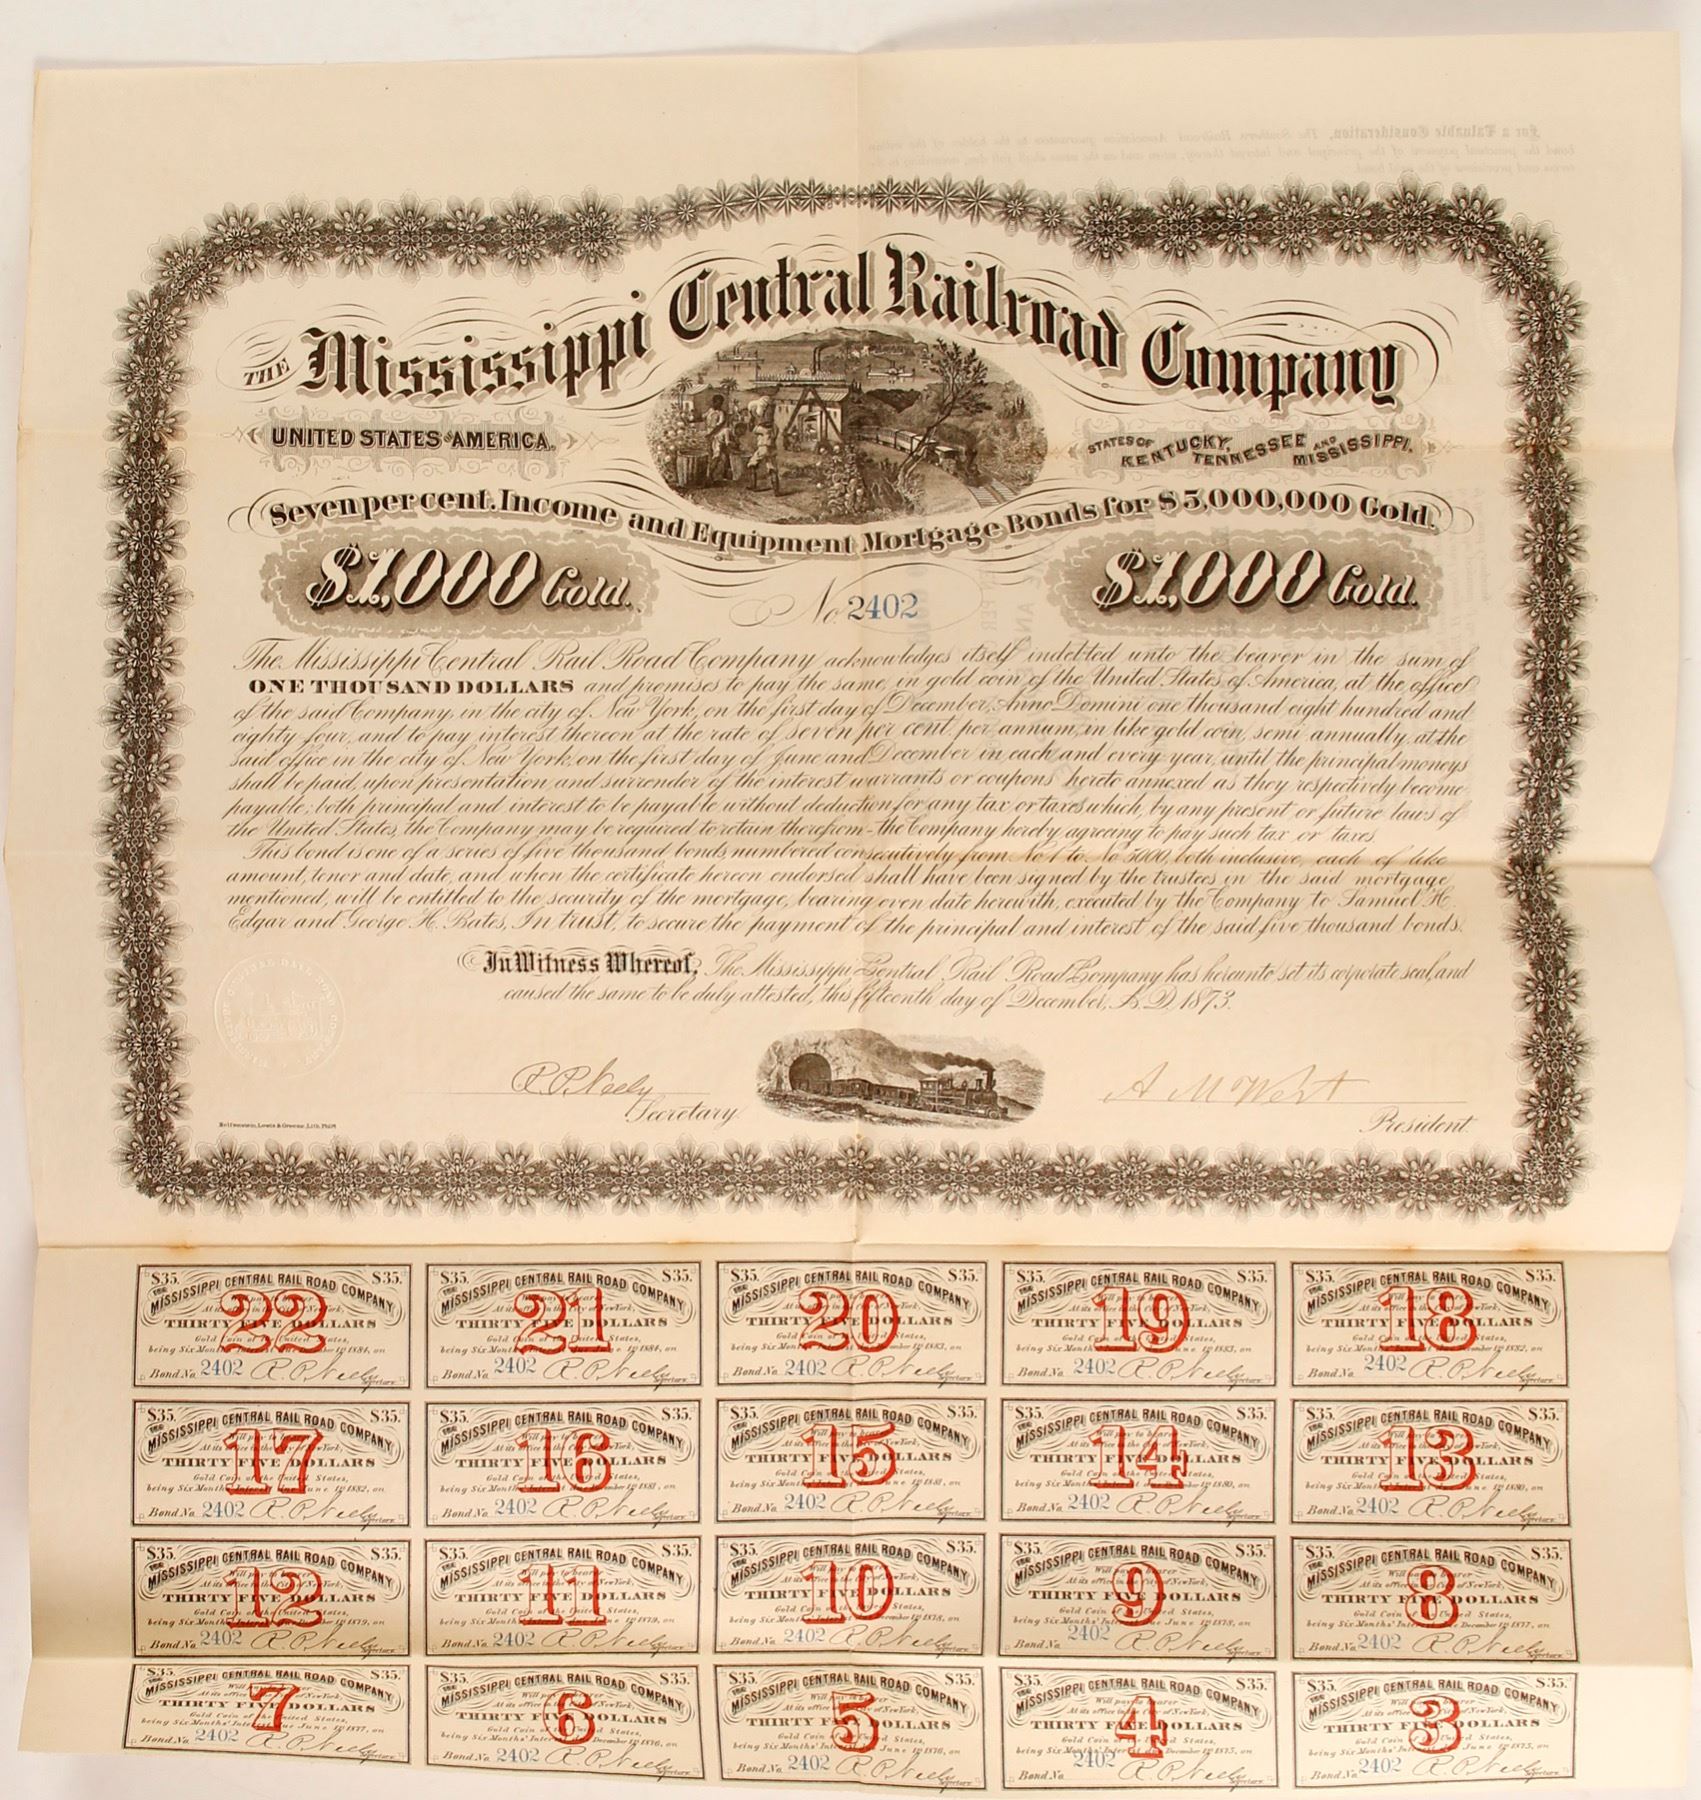 For a Valuable Consideration, The Southern Railroad Association guarantees to the holder of the within
bond the punctual payment of the principal and interest thereof, when and as the same shall fall due, according to the
terms and provisions of the said bond.
THE Mississippi Central Railroad Company
UNITED STATES OF AMERICA.
STATES OF KENTUCKY, TENNESSEE AND MISSISSIPPI.
Seven per cent. Income and Equipment Mortgage Bonds for $5,000,000 Gold.
$1,000 Gold.
No. 2402
$1,000 Gold.
The Mississippi Central Rail Road Company acknowledges itself indebted unto the bearer in the sum of
ONE THOUSAND DOLLARS and promises to pay the same, in gold coin of the United States of America, at the office
of the said Company, in the city of New York, on the first day of December, Anno Domini one thousand eight hundred and
eighty four, and to pay interest thereon at the rate of seven per cent. per annum, in like gold coin, semi annually, at the
said office in the city of New York, on the first day of June and December in each and every year, until the principal moneys
shall be paid, upon presentation and surrender of the interest warrants or coupons hereto annexed as they respectively become
payable; both principal and interest to be payable without deduction for any tax or taxes which, by any present or future laws of
the United States, the Company may be required to retain therefrom - the Company hereby agreeing to pay such tax or taxes.
This bond is one of a series of five thousand bonds, numbered consecutively from No 1 to No 5000, both inclusive, each of like
amount, tenor and date, and when the certificate hereon endorsed shall have been signed by the trustees in the said mortgage
mentioned, will be entitled to the security of the mortgage, bearing even date herewith, executed by the Company to Samuel H.
Edgar and George H. Bates, In trust, to secure the payment of the principal and interest of the said five thousand bonds.
In Witness Whereof, The Mississippi Central Rail Road Company has hereunto set its corporate seal, and
caused the same to be duly attested, this fifteenth day of December, A.D. 1873.
R. P. Neely
Secretary.
A M West
President.
Helfenstein, Lewis & Greene, Lith. Phila
$35. THE MISSISSIPPI CENTRAL RAIL ROAD COMPANY $35.
Will pay to bearer
At its office in the City of New York,
THIRTY FIVE DOLLARS
Gold Coin of the United States,
being Six Months' Interest due December 1st 1884, on
Bond No. 2402 R. P. Neely Secretary.
22
$35. THE MISSISSIPPI CENTRAL RAIL ROAD COMPANY $35.
Will pay to bearer
At its office in the City of New York,
THIRTY FIVE DOLLARS
Gold Coin of the United States,
being Six Months' Interest due June 1st 1884, on
Bond No. 2402 R. P. Neely Secretary.
21
$35. THE MISSISSIPPI CENTRAL RAIL ROAD COMPANY $35.
Will pay to bearer
At its office in the City of New York,
THIRTY FIVE DOLLARS
Gold Coin of the United States,
being Six Months' Interest due December 1st 1883, on
Bond No. 2402 R. P. Neely Secretary.
20
$35. THE MISSISSIPPI CENTRAL RAIL ROAD COMPANY $35.
Will pay to bearer
At its office in the City of New York,
THIRTY FIVE DOLLARS
Gold Coin of the United States,
being Six Months' Interest due June 1st 1883, on
Bond No. 2402 R. P. Neely Secretary.
19
$35. THE MISSISSIPPI CENTRAL RAIL ROAD COMPANY $35.
Will pay to bearer
At its office in the City of New York,
THIRTY FIVE DOLLARS
Gold Coin of the United States,
being Six Months' Interest due December 1st 1882, on
Bond No. 2402 R. P. Neely Secretary.
18
$35. THE MISSISSIPPI CENTRAL RAIL ROAD COMPANY $35.
Will pay to bearer
At its office in the City of New York,
THIRTY FIVE DOLLARS
Gold Coin of the United States,
being Six Months' Interest due June 1st 1882, on
Bond No. 2402 R. P. Neely Secretary.
17
$35. THE MISSISSIPPI CENTRAL RAIL ROAD COMPANY $35.
Will pay to bearer
At its office in the City of New York,
THIRTY FIVE DOLLARS
Gold Coin of the United States,
being Six Months' Interest due December 1st 1881, on
Bond No. 2402 R. P. Neely Secretary.
16
$35. THE MISSISSIPPI CENTRAL RAIL ROAD COMPANY $35.
Will pay to bearer
At its office in the City of New York,
THIRTY FIVE DOLLARS
Gold Coin of the United States,
being Six Months' Interest due June 1st 1881, on
Bond No. 2402 R. P. Neely Secretary.
15
$35. THE MISSISSIPPI CENTRAL RAIL ROAD COMPANY $35.
Will pay to bearer
At its office in the City of New York,
THIRTY FIVE DOLLARS
Gold Coin of the United States,
being Six Months' Interest due December 1st 1880, on
Bond No. 2402 R. P. Neely Secretary.
14
$35. THE MISSISSIPPI CENTRAL RAIL ROAD COMPANY $35.
Will pay to bearer
At its office in the City of New York,
THIRTY FIVE DOLLARS
Gold Coin of the United States,
being Six Months' Interest due June 1st 1880, on
Bond No. 2402 R. P. Neely Secretary.
13
$35. THE MISSISSIPPI CENTRAL RAIL ROAD COMPANY $35.
Will pay to bearer
At its office in the City of New York,
THIRTY FIVE DOLLARS
Gold Coin of the United States,
being Six Months' Interest due December 1st 1879, on
Bond No. 2402 R. P. Neely Secretary.
12
$35. THE MISSISSIPPI CENTRAL RAIL ROAD COMPANY $35.
Will pay to bearer
At its office in the City of New York,
THIRTY FIVE DOLLARS
Gold Coin of the United States,
being Six Months' Interest due June 1st 1879, on
Bond No. 2402 R. P. Neely Secretary.
11
$35. THE MISSISSIPPI CENTRAL RAIL ROAD COMPANY $35.
Will pay to bearer
At its office in the City of New York,
THIRTY FIVE DOLLARS
Gold Coin of the United States,
being Six Months' Interest due December 1st 1878, on
Bond No. 2402 R. P. Neely Secretary.
10
$35. THE MISSISSIPPI CENTRAL RAIL ROAD COMPANY $35.
Will pay to bearer
At its office in the City of New York,
THIRTY FIVE DOLLARS
Gold Coin of the United States,
being Six Months' Interest due June 1st 1878, on
Bond No. 2402 R. P. Neely Secretary.
9
$35. THE MISSISSIPPI CENTRAL RAIL ROAD COMPANY $35.
Will pay to bearer
At its office in the City of New York,
THIRTY FIVE DOLLARS
Gold Coin of the United States,
being Six Months' Interest due December 1st 1877, on
Bond No. 2402 R. P. Neely Secretary.
8
$35. THE MISSISSIPPI CENTRAL RAIL ROAD COMPANY $35.
Will pay to bearer
At its office in the City of New York,
THIRTY FIVE DOLLARS
Gold Coin of the United States,
being Six Months' Interest due June 1st 1877, on
Bond No. 2402 R. P. Neely Secretary.
7
$35. THE MISSISSIPPI CENTRAL RAIL ROAD COMPANY $35.
Will pay to bearer
At its office in the City of New York,
THIRTY FIVE DOLLARS
Gold Coin of the United States,
being Six Months' Interest due December 1st 1876, on
Bond No. 2402 R. P. Neely Secretary.
6
$35. THE MISSISSIPPI CENTRAL RAIL ROAD COMPANY $35.
Will pay to bearer
At its office in the City of New York,
THIRTY FIVE DOLLARS
Gold Coin of the United States,
being Six Months' Interest due June 1st 1876, on
Bond No. 2402 R. P. Neely Secretary.
5
$35. THE MISSISSIPPI CENTRAL RAIL ROAD COMPANY $35.
Will pay to bearer
At its office in the City of New York,
THIRTY FIVE DOLLARS
Gold Coin of the United States,
being Six Months' Interest due December 1st 1875, on
Bond No. 2402 R. P. Neely Secretary.
4
$35. THE MISSISSIPPI CENTRAL RAIL ROAD COMPANY $35.
Will pay to bearer
At its office in the City of New York,
THIRTY FIVE DOLLARS
Gold Coin of the United States,
being Six Months' Interest due June 1st 1875, on
Bond No. 2402 R. P. Neely Secretary.
3